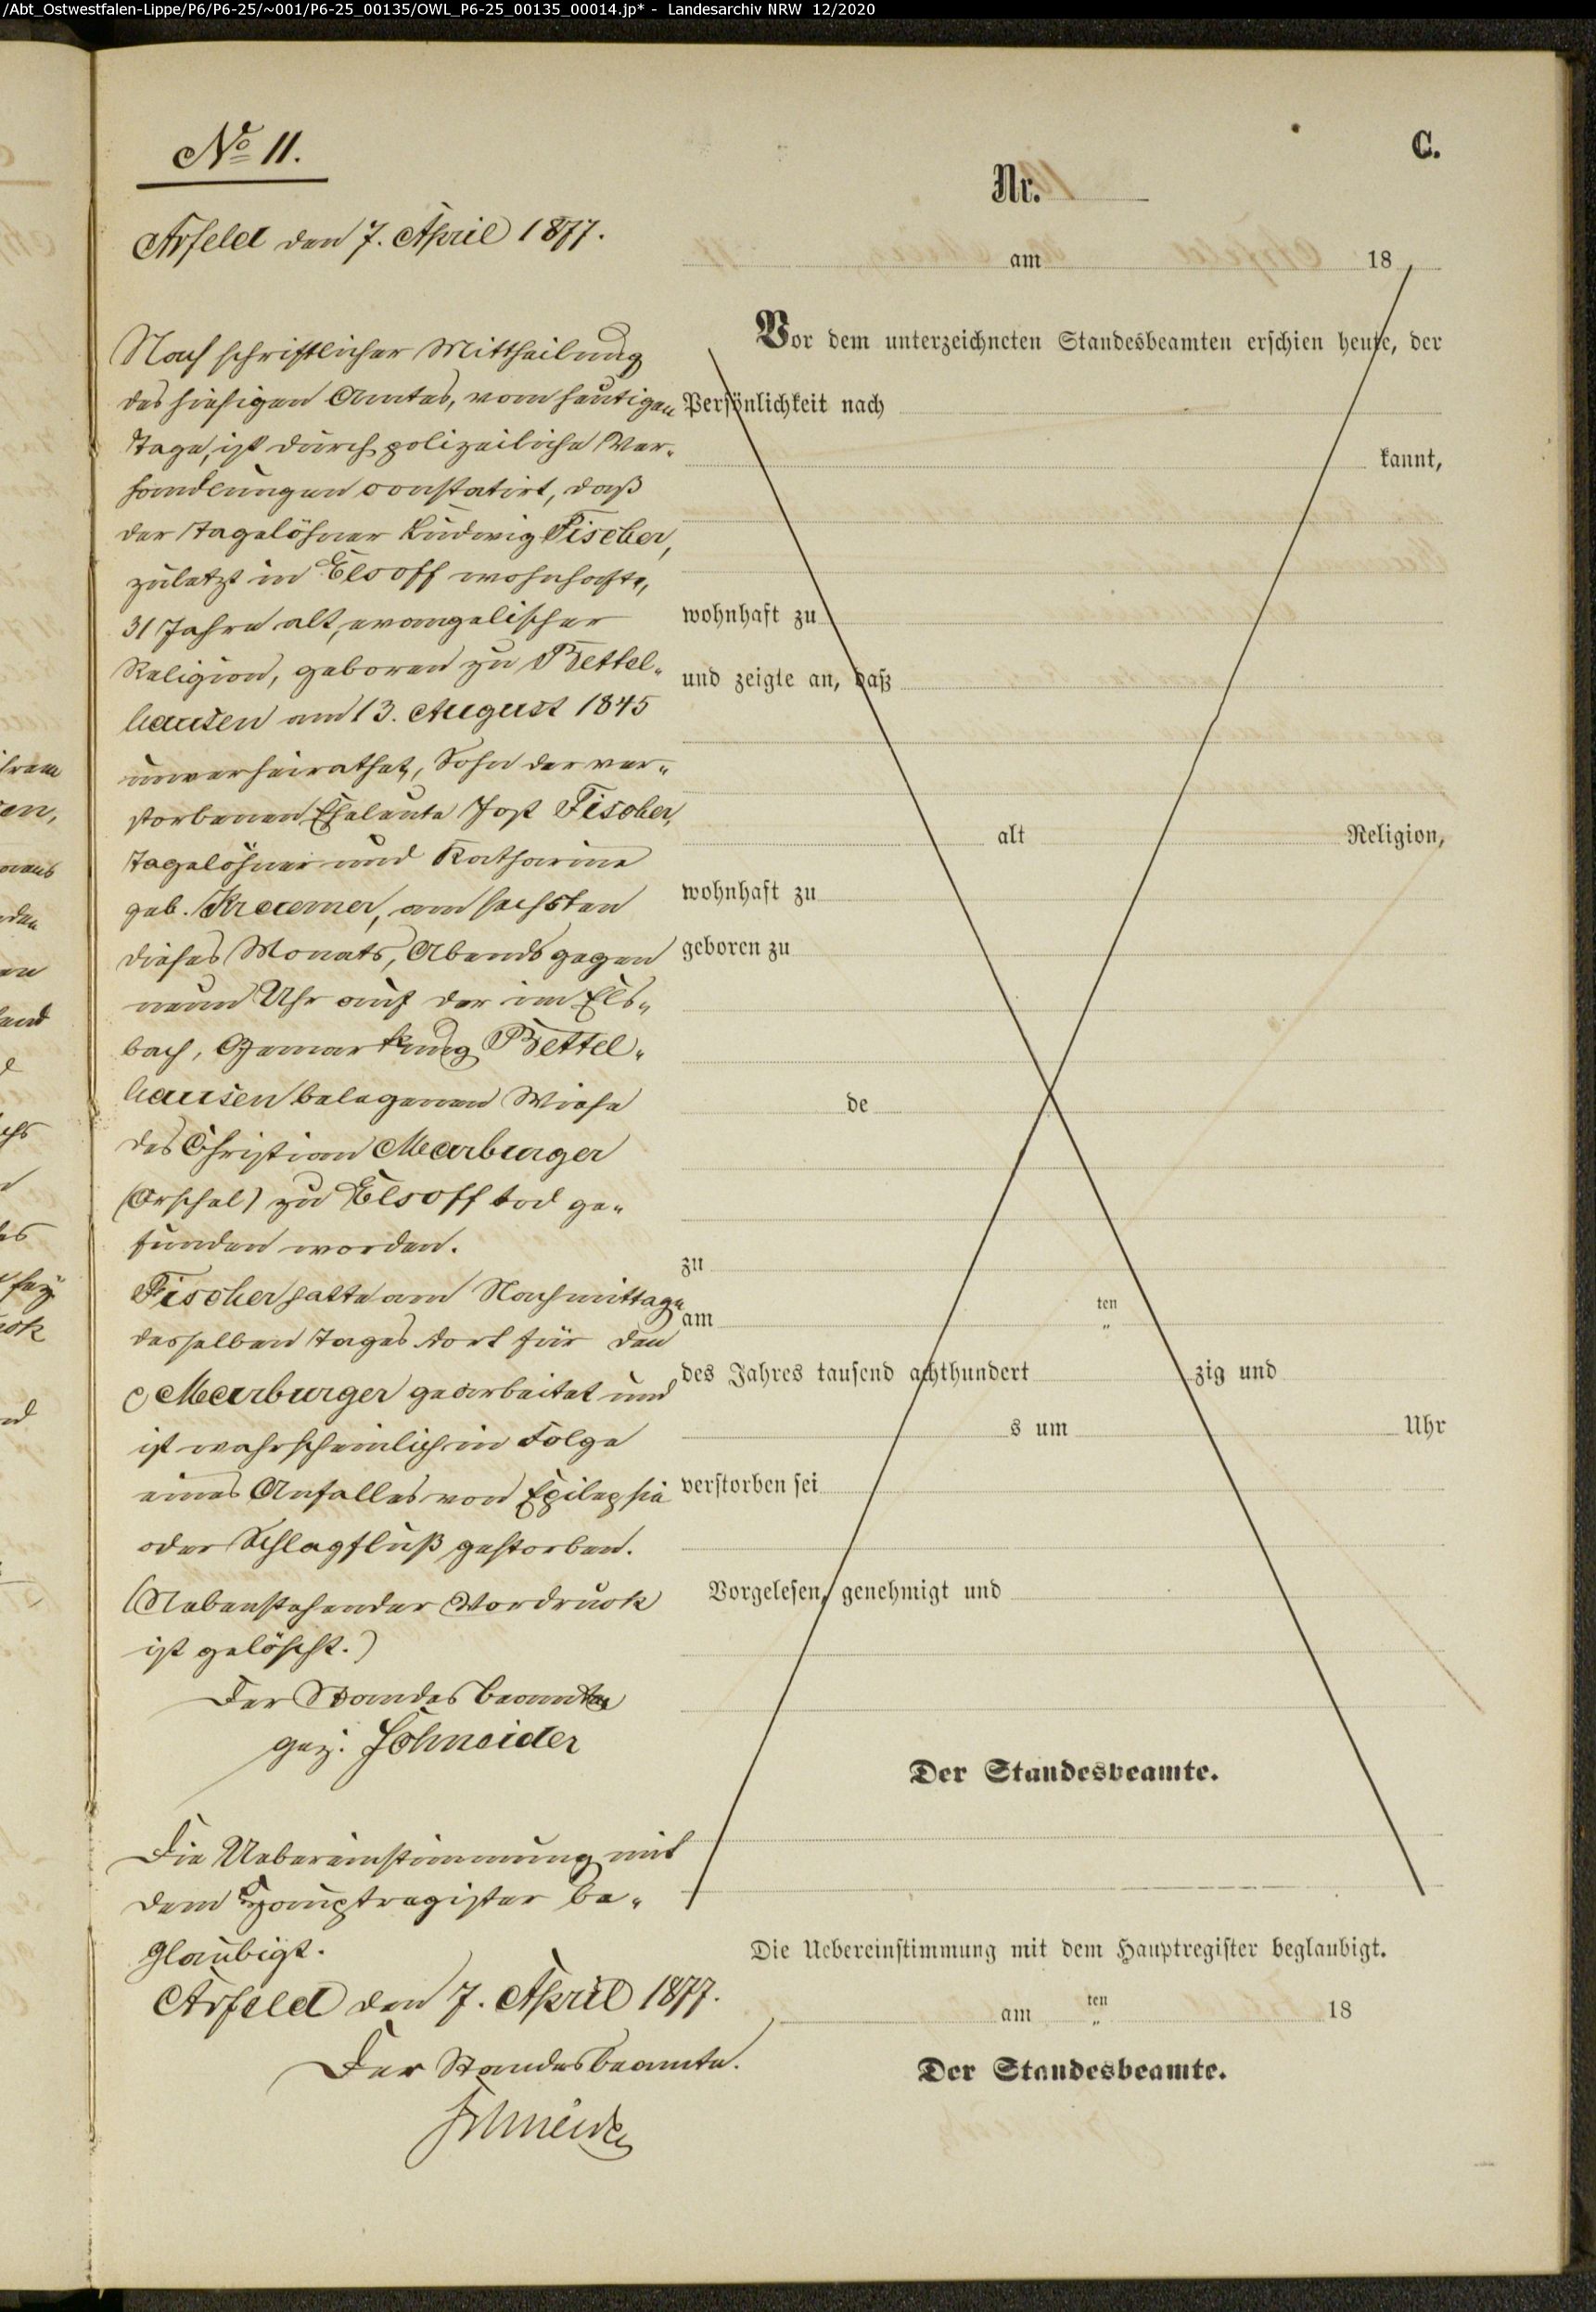 /Abt_Ostwestfalen-Lippe/P6/P6-25/~001/P6-25_00135/OWL_P6-25_00135_00014.jp* - Landesarchiv NRW 12/2020
No 11.
Arfeld den 7. April 1877.
Nach schriftlicher Mittheilung
des hiesigen Amtes, vom heutigen
Tage, ist durch polizeiliche Ver-
handlungen constatirt, daß
der Tagelöhner Ludwig Fischer,
zuletzt in Elsoff wohnhaft,
31 Jahre alt, evangelischer
Religion, geboren zu Bettel-
hausen am 13. August 1845
unverheirathet, Sohn der ver-
storbenen Eheleute Jost Fischer,
Tagelöhner und Katharine
geb. Kraemer, am sechsten
dieses Monats, Abends gegen
neun Uhr auf der im Els-
bach, Gemarkung Bettel-
hausen belegenen Wiese
des Christian Marburger
(Orschel) zu Elsoff tod ge-
funden worden.
Fischer hatte am Nachmittage
desselben Tages dort für den
Marburger gearbeitet und
ist wahrscheinlich in Folge
eines Anfalles von Epilepsie
oder Schlagfluß gestorben.
(Nebenstehender Vordruck
ist gelöscht.)
Der Standesbeamte
gez. Schneider
Die Uebereinstimmung mit
dem Hauptregister be-
glaubigt.
Arfeld den 7. April 1877.
Der Standesbeamte.
Schneider
C.
Nr.
am 18
Vor dem unterzeichneten Standesbeamten erschien heute, der
Persönlichkeit nach
kannt,
wohnhaft zu
und zeigte an, daß
alt Religion,
wohnhaft zu
geboren zu
de
zu
am ten
des Jahres tausend achthundert zig und
s um Uhr
verstorben sei
Vorgelesen, genehmigt und
Der Standesbeamte.
Die Uebereinstimmung mit dem Hauptregister beglaubigt.
am ten 18
Der Standesbeamte.